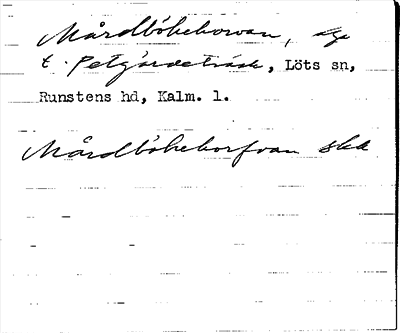 Mårdbökeborvan,
t. Petgärdeträsk, Löts sn,
Runstens hd, Kalm. l.
Mårdbökeborfvan ska